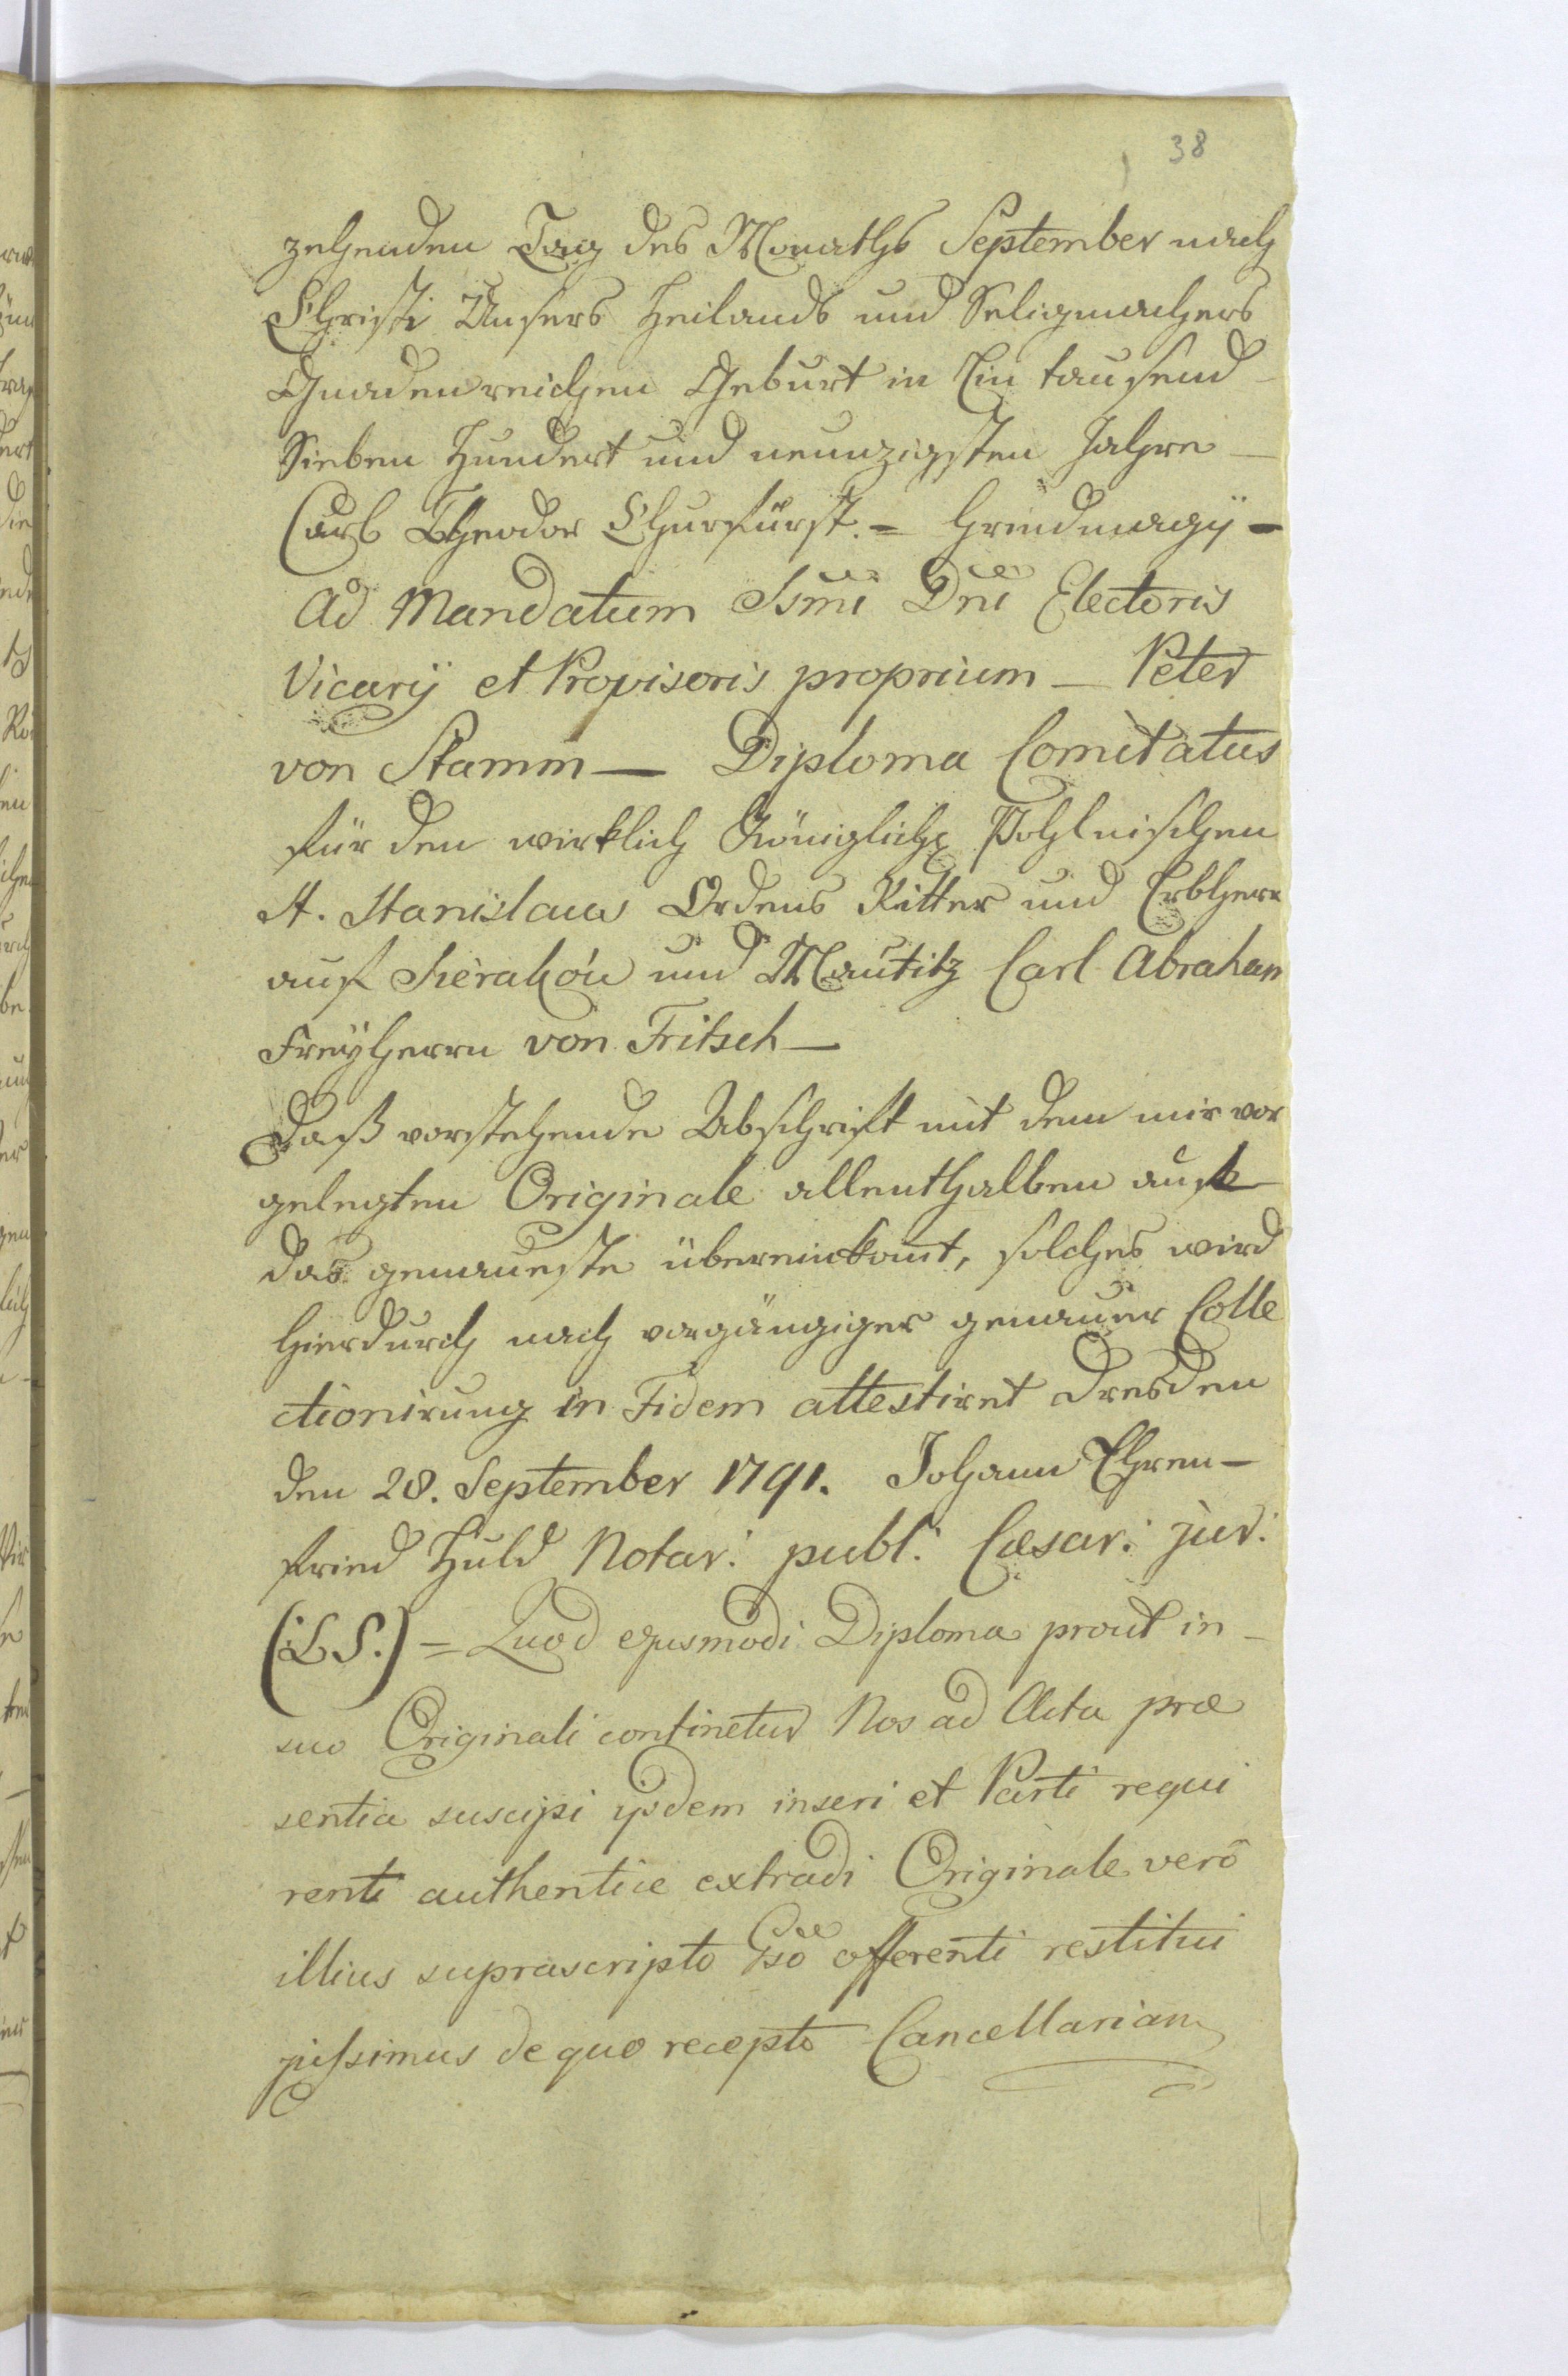 38
zehenden Tag des Monaths September nach
Christi Unsers Heilands und Seligmachers
Gnadenreichen Geburt in Ein tausend
Sieben Hundert und neunzigsten Jahre —
Carl Theodor Churfürst. =
Ad Mandatum Ssmi Dni Electoris
Vicarÿ et Provisoris proprium — Peter
von Stamm — Diploma Comitatus
für den wirklich Königlich Pohlnischen
St. Stanislaus Ordens Ritter und Erbherr
auf und Mautitz Carl Abraham
Freÿherrn von Fritsch —
Daß vorstehende Abschrift mit dem mir vor
gelegten Originale allenthalben aufs
das genaueste übereinkomt, solches wird
hierdurch nach vorgängiger genauer Colle
ctionirung in Fidem attestiret Dresden
den 28. September 1791. Johann Ehren –
fried Huld Notar: publ: Cæsar: jur:
(:LS.) = Quod ejusmodi Diploma prout in –
suo Originali continetur Nos ad Acta præ
sentia suscipi ijsdem inseri et Parti requi
renti authentice extradi Originale verò
illius suprascripto Gsō offerenti restitui
jussimus de quo recepto Cancellariam